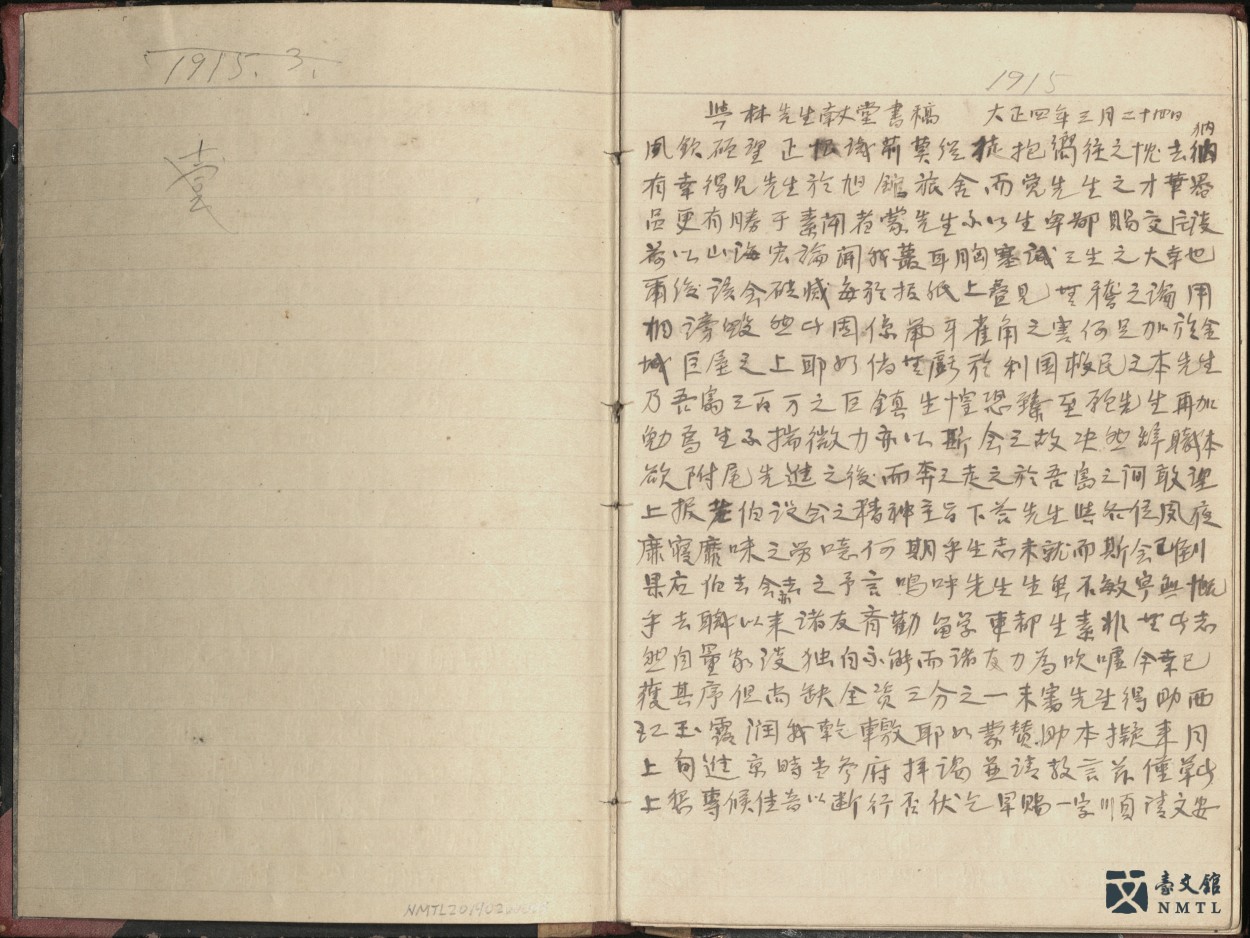 1915. 3.
臺
1915
與林先生献堂書稿 大正四年三月二十四日
風欽碩望正 識荊莫從 抱嚮往之忱去納
有幸得見先生於旭館旅舍而覺先生之才華器
品更有勝于素聞者蒙先生不以生卑鄙賜交
以山海宏論開我聾耳胸塞誠三生之大幸也
爾後該會破滅每於报紙上疊見無稽之論用
相謗毀然此固係鼠牙雀角之害何足加於金
城巨屋之上耶如倘無虧於利国救民之本先生
乃吾島三百万之巨鎮生惶恐臻至願先生再加
勉焉生不揣微力亦以斯会之故决然辞職本
欲附尾先進之後而奔之走之於吾島之间敢望
上报老伯设会之精神主旨下荅先生與各位夙夜
靡寢靡味之劳噫何期乎生志未就而斯会已倒
果应伯去会亦去之予言嗚呼先生生虽不敏寧無慨
乎去職以来诸友齊勸留学東都生素非無此志
然自量家 独自不能而诸友力為吹噓今幸已
獲其序但尚缺全资三分之一未審先生得助西
江玉露润我乾轍耶如蒙赞助本擬来月
上旬進京時当参府拝謁並请教言茲僅草此
上懇專候佳音以断行否伏乞早賜一字順请文安
NMTL20140200
臺文館
NMTL